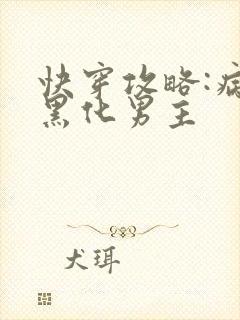 快穿攻略:病
黑化男主
犬珥